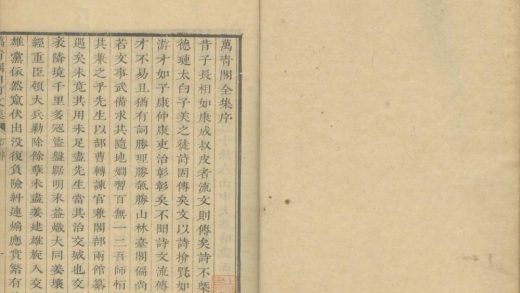 萬青閣全集序
昔子長相如康成叔皮者流文則傳矣詩不槩
德璉太白子美之徒詩固傳矣文以詩揜賢如
游才如子康仲康吏治彰彰矣不聞詩文流傳
才不易且猶有詞勝理勝氣勝山林臺閣偏尚
若文事武備求其隨地嫻習百無一二吾師恒
其兼之乎先生以部曹轉諫官兼閣部兩館纂
遇矣未竟其用未足盡先生當其治交城也交
袤境千里多宼盜盤明末益熾大同姜壤
經重臣領大兵勦除餘孽未盡姜建雄旋入交
雄黨依然竄伏出沒復負險糾連煽應實繁有